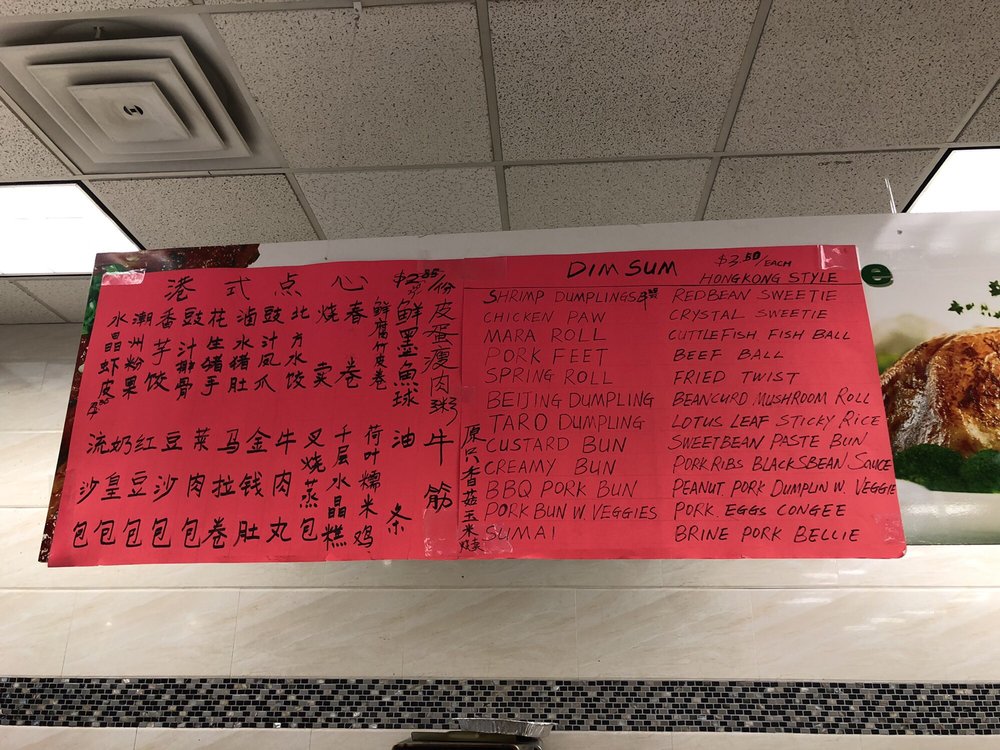 港式点心
$2.85/份
水晶虾皮
潮州粉果
香芋饺
豉汁排骨
花生猪手
滷水猪肚
豉汁凤爪
北方水饺
烧卖
春卷
鲜腐竹皮卷
鲜墨魚球
皮蛋瘦肉粥
流沙包
奶皇包
红豆包
豆沙包
菜肉包
马拉卷
金钱肚
牛肉丸
叉烧蒸包
千层水晶糕
荷叶糯米鸡
油条
牛筋
原只香菇玉米
DIM SUM
$3.50/EACH
HONGKONG STYLE
SHRIMP DUMPLINGS
CHICKEN PAW
MARA ROLL
PORK FEET
SPRING ROLL
BEIJING DUMPLING
TARO DUMPLING
CUSTARD BUN
CREAMY BUN
BBQ PORK BUN
PORK BUN W. VEGGIES
SUMAI
REDBEAN SWEETIE
CRYSTAL SWEETIE
CUTTLEFISH FISH BALL
BEEF BALL
FRIED TWIST
BEANCURD MUSHROOM ROLL
LOTUS LEAF STICKY RICE
SWEETBEAN PASTE BUN
PORK RIBS BLACKSBEAN SAUCE
PEANUT PORK DUMPLIN W. VEGGIE
PORK EGGS CONGEE
BRINE PORK BELLIE
e